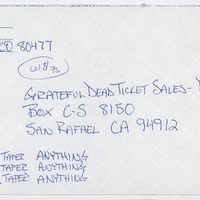 CO 80477
GRATEFUL DEAD TICKET SALES-
BOX C-S 8150
SAN RAFAEL CA 94912
TAPER ANYTHING
TAPER ANYTHING
TAPER ANYTHING